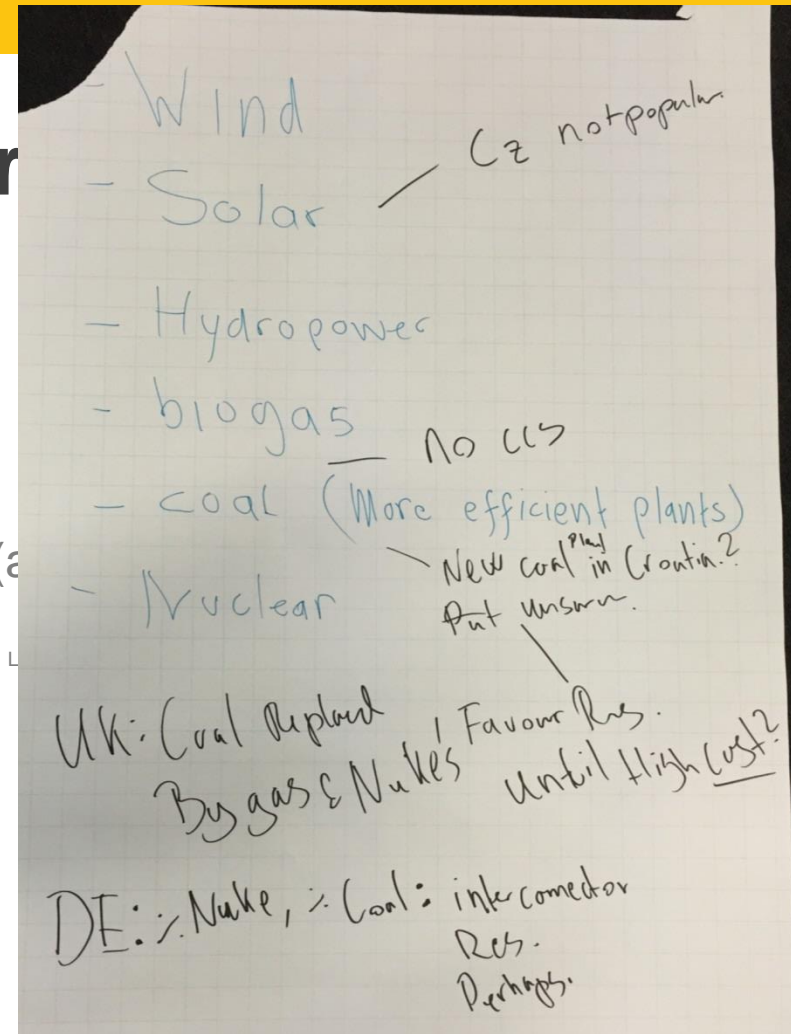 - Wind
- Solar
Cz not popular.
- Hydropower
- biogas
no ccs
- coal (More efficient plants)
New coal Plant in Croatia?
- Nuclear
UK: Coal Replaced
By gas & Nukes
Favour Res.
Until High Cost?
DE: ÷ Nuke, ÷ Coal: interconnector
Res.
Perhaps.
r
(a
L